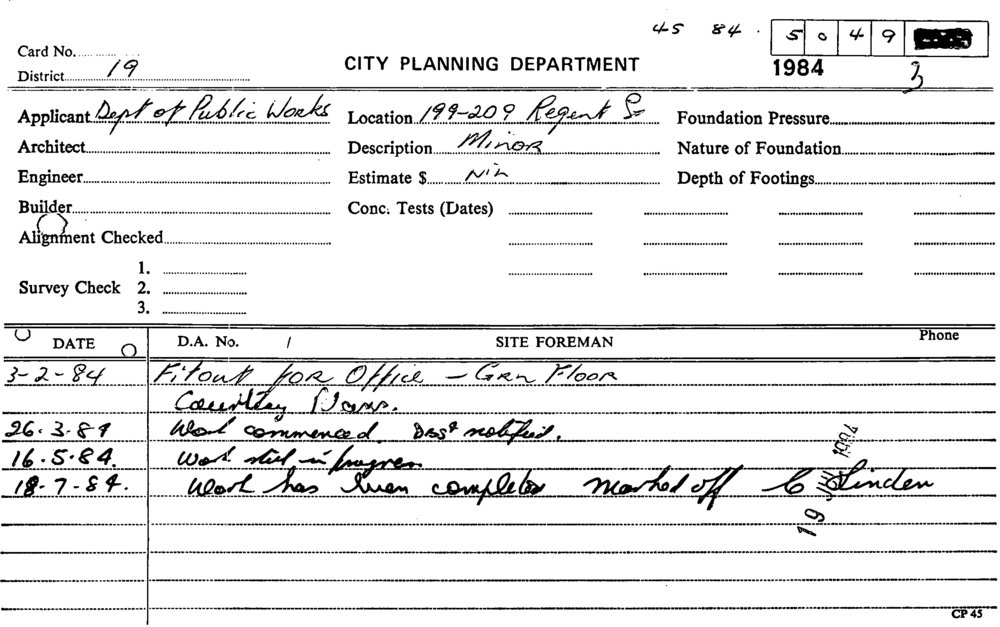 45 84. 5 0 4 9
Card No.
District 19
CITY PLANNING DEPARTMENT
1984 3
Applicant Dept of Public Works Location 199-209 Regent St Foundation Pressure
Architect Description Minor Nature of Foundation
Engineer Estimate $ Nil Depth of Footings
Builder Conc. Tests (Dates)
Alignment Checked
1.
Survey Check 2.
3.
DATE D.A. No. / SITE FOREMAN Phone
3-2-84 Fitout for Office - Grn Floor
Courtesy
26.3.84 Work commenced. notified.
16.5.84. Work still in progress
18-7-84. Work has been completed marked off C Linden
19 JUL 1984
CP 45